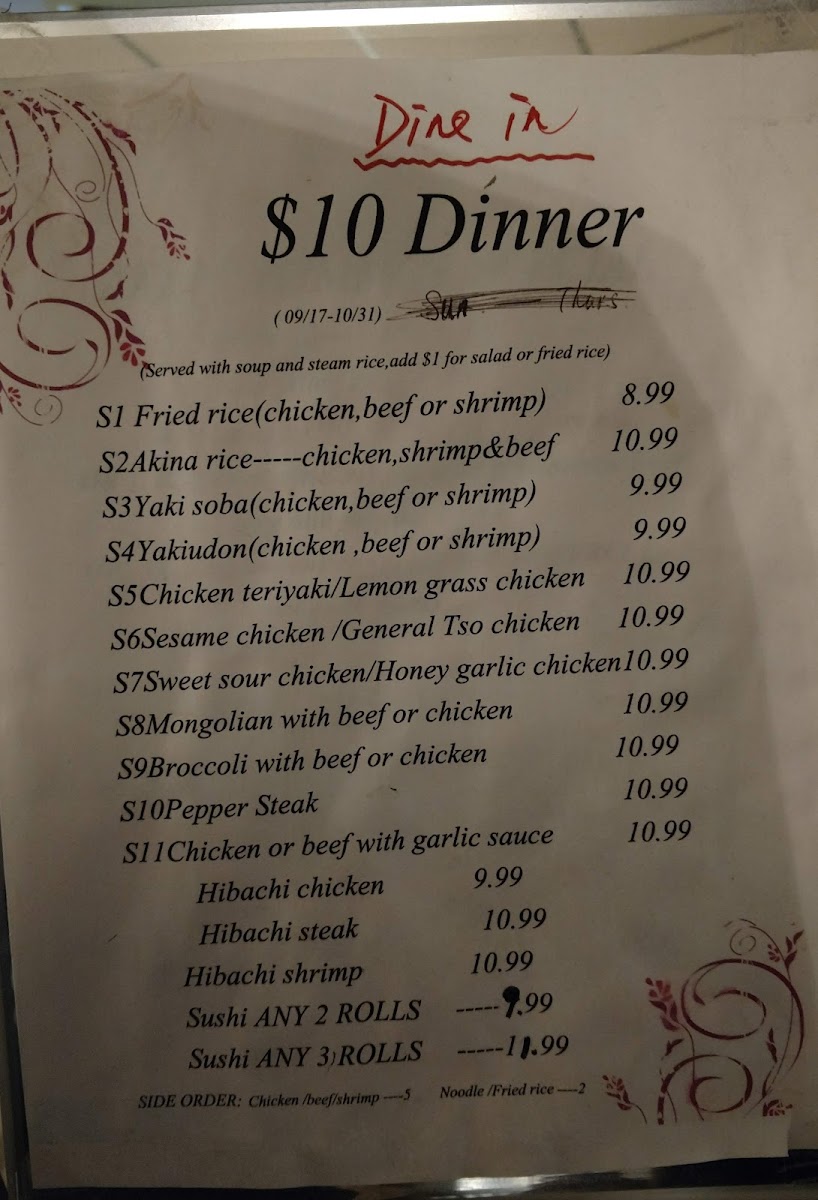 Dine in
$10 Dinner
( 09/17-10/31) Sun Thurs
(Served with soup and steam rice,add $1 for salad or fried rice)
S1 Fried rice(chicken,beef or shrimp) 8.99
S2Akina rice-----chicken,shrimp&beef 10.99
S3Yaki soba(chicken,beef or shrimp) 9.99
S4Yakiudon(chicken ,beef or shrimp) 9.99
S5Chicken teriyaki/Lemon grass chicken 10.99
S6Sesame chicken /General Tso chicken 10.99
S7Sweet sour chicken/Honey garlic chicken10.99
S8Mongolian with beef or chicken 10.99
S9Broccoli with beef or chicken 10.99
S10Pepper Steak 10.99
S11Chicken or beef with garlic sauce 10.99
Hibachi chicken 9.99
Hibachi steak 10.99
Hibachi shrimp 10.99
Sushi ANY 2 ROLLS -----9.99
Sushi ANY 3)ROLLS -----11.99
SIDE ORDER: Chicken /beef/shrimp ----5 Noodle /Fried rice ----2